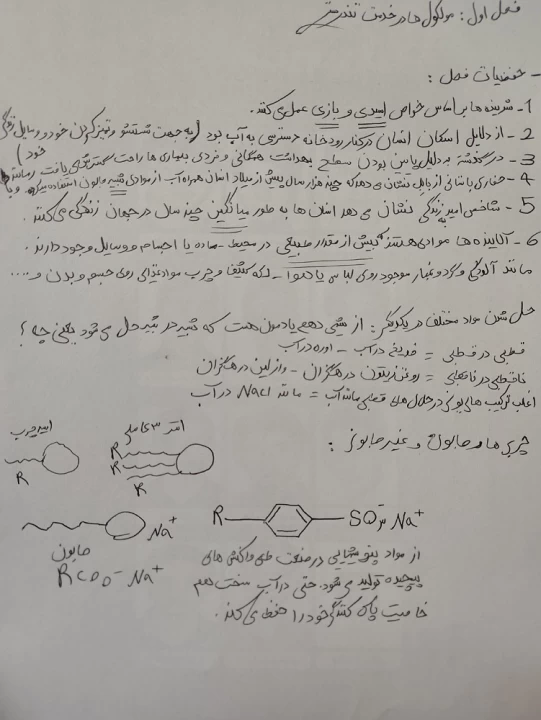 فصل اول: مولکول ها در خدمت تندرستی
- حفظیات فصل:
1- شوینده ها براساس خواص اسیدی و بازی عمل می کنند.
2- از دلایل اسکان انسان در کنار رودخانه دسترسی به آب بود (به جهت شستشو و تمیز کردن خود و وسایل زندگی خود)
3- در گذشته به دلیل پایین بودن سطح بهداشت همگانی و فردی بیماری ها راحت گسترش می یافت
4- حفاری باستانی از بابل نشان می دهد که چند هزار سال پیش از میلاد انسان همراه آب از موادی شبیه صابون استفاده میکرد
5- شاخص امید به زندگی نشان می دهد انسان ها به طور میانگین چند سال در جهان زندگی می کنند.
6- آلاینده ها موادی هستند که بیش از مقدار طبیعی در محیط - ماده یا اجسام و وسایل وجود دارند.
مانند آلودگی و گرد و غبار موجود روی لباس یا هوا - لکه کثیف و چرب مواد غذایی روی جسم و بدن و ....
حل شدن مواد مختلف در یکدیگر: از شیمی دهم یادمون هست که شبیه در شبیه حل می شود یعنی چه؟
قطبی در قطبی = ضدیخ در آب - اوره در آب
ناقطبی در ناقطبی = روغن زیتون در هگزان - وازلین در هگزان
اغلب ترکیب های یونی در حلال های قطبی مانند آب = مانند NaCl در آب
چربی ها و صابون و غیر صابونی:
اسید چرب
استر ۳ عاملی
R
R
R
R
Na⁺
R
SO₃⁻ Na⁺
صابون
RCOO⁻ Na⁺
از مواد پتروشیمیایی در صنعت طی واکنش های
پیچیده تولید می شود. حتی در آب سخت هم
خاصیت پاک کنندگی خود را حفظ می کند.